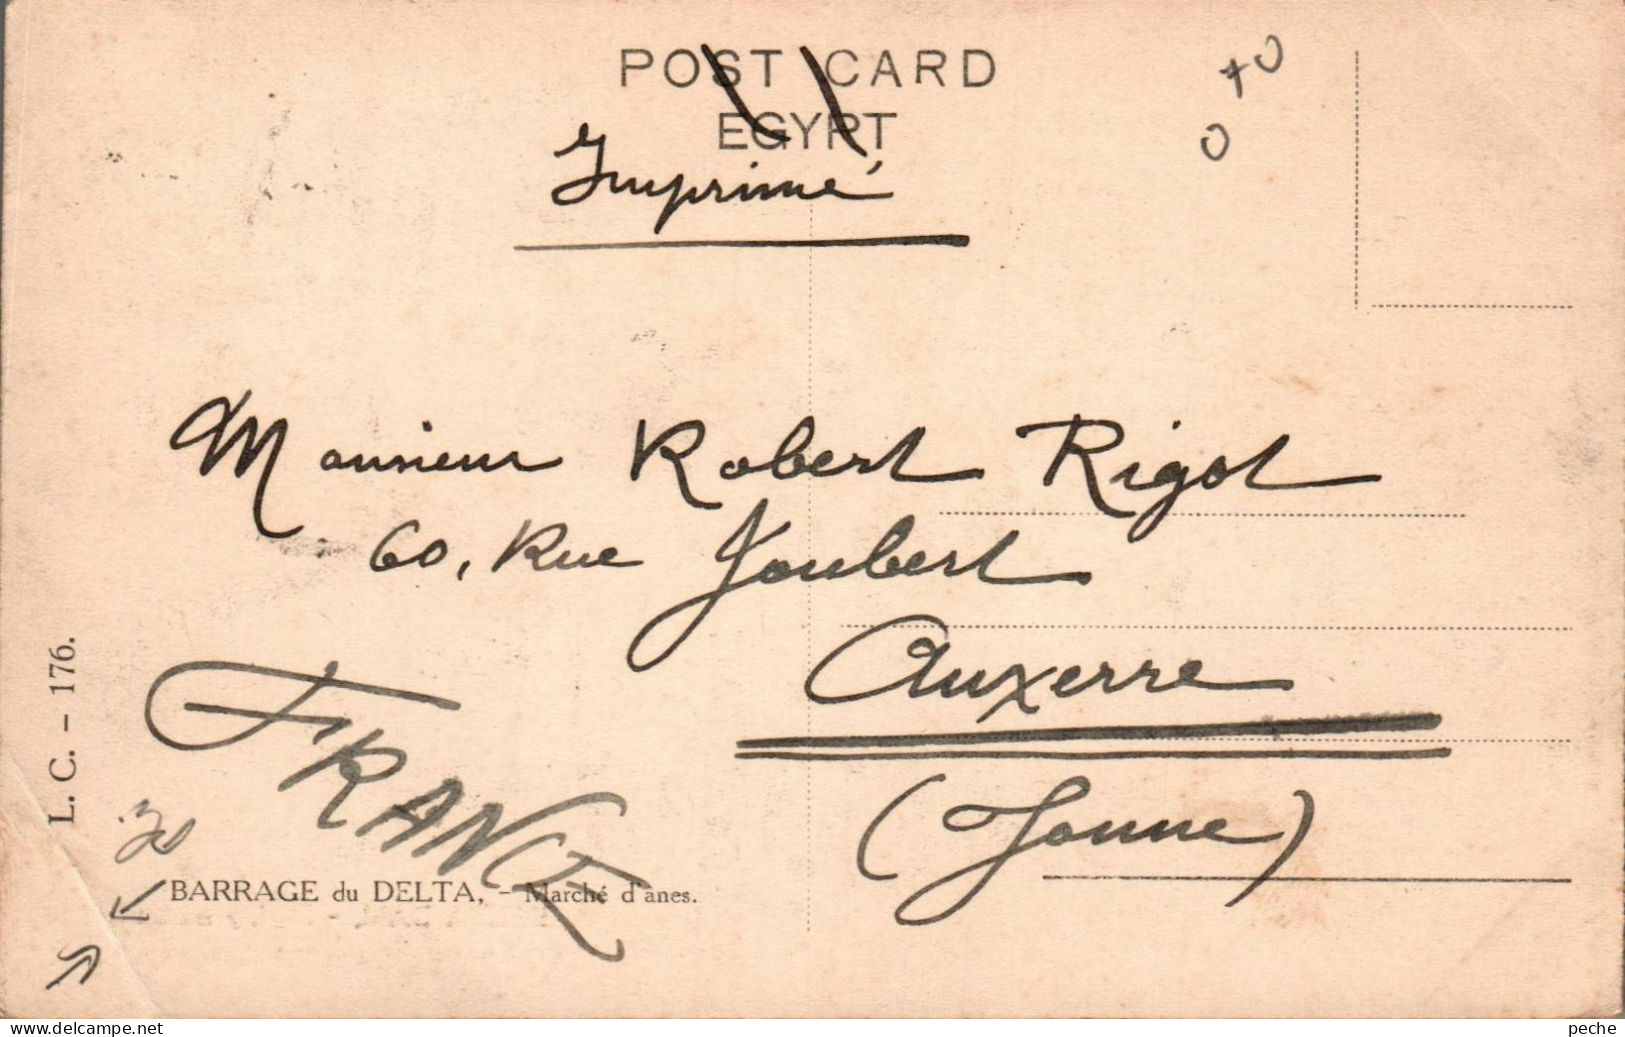 POST CARD
EGYPT
Imprimé
Monsieur Robert Rigot
60, Rue Joubert
Auxerre
(Yonne)
FRANCE
L. C. - 176.
BARRAGE du DELTA, - Marché d'ânes.
www.delcampe.net
peche